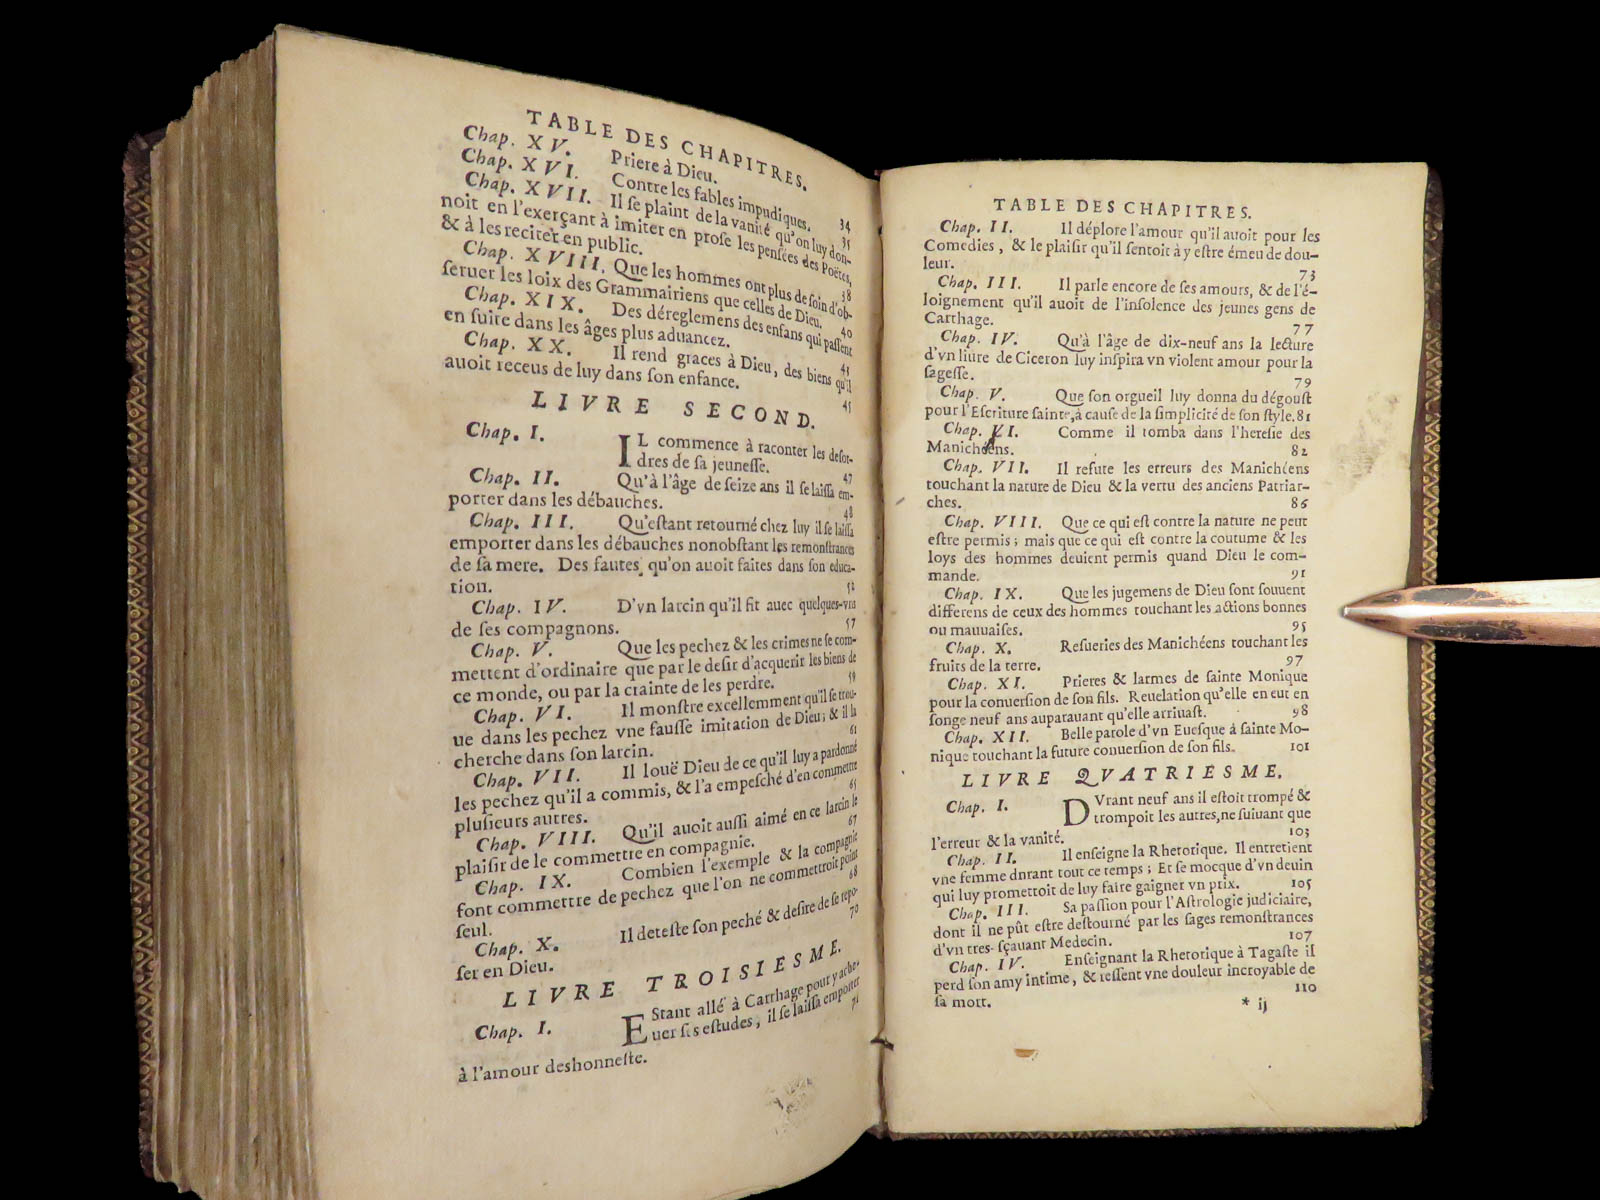 TABLE DES CHAPITRES.
Chap. XV. Priere à Dieu. 34
Chap. XVI. Contre les fables impudiques. 35
Chap. XVII. Il ſe plaint de la vanité qu'on luy don-
noit en l'exerçant à imiter en proſe les penſées des Poëtes,
& à les reciter en public. 38
Chap. XVIII. Que les hommes ont plus de ſoin d'ob-
ſeruer les loix des Grammairiens que celles de Dieu. 40
Chap. XIX. Des déreglemens des enfans qui paſſent
en ſuite dans les âges plus aduancez. 43
Chap. XX. Il rend graces à Dieu, des biens qu'il
auoit receus de luy dans ſon enfance. 45
LIVRE SECOND.
Chap. I. IL commence à raconter les deſor-
dres de ſa jeuneſſe. 47
Chap. II. Qu'à l'âge de ſeize ans il ſe laiſſa em-
porter dans les débauches. 48
Chap. III. Qu'eſtant retourné chez luy il ſe laiſſa
emporter dans les débauches nonobſtant les remonſtrances
de ſa mere. Des fautes qu'on auoit faites dans ſon educa-
tion. 52
Chap. IV. D'vn larcin qu'il fit auec quelques-vns
de ſes compagnons. 57
Chap. V. Que les pechez & les crimes ne ſe com-
mettent d'ordinaire que par le deſir d'acquerir les biens de
ce monde, ou par la crainte de les perdre. 59
Chap. VI. Il monſtre excellemment qu'il ſe trou-
ue dans les pechez vne fauſſe imitation de Dieu; & il la
cherche dans ſon larcin. 61
Chap. VII. Il louë Dieu de ce qu'il luy a pardonné
les pechez qu'il a commis, & l'a empeſché d'en commettre
pluſieurs autres. 65
Chap. VIII. Qu'il auoit auſſi aimé en ce larcin le
plaiſir de le commettre en compagnie. 67
Chap. IX. Combien l'exemple & la compagnie
font commettre de pechez que l'on ne commettroit point
ſeul. 68
Chap. X. Il deteſte ſon peché & deſire de ſe repo-
ſer en Dieu. 70
LIVRE TROISIESME.
Chap. I. EStant allé à Carthage pour y ache-
uer ſes eſtudes, il ſe laiſſa emporter
à l'amour deshonneſte. 71
TABLE DES CHAPITRES.
Chap. II. Il déplore l'amour qu'il auoit pour les
Comedies, & le plaiſir qu'il ſentoit à y eſtre émeu de dou-
leur. 73
Chap. III. Il parle encore de ſes amours, & de l'é-
loignement qu'il auoit de l'inſolence des jeunes gens de
Carthage. 77
Chap. IV. Qu'à l'âge de dix-neuf ans la lecture
d'vn liure de Ciceron luy inſpira vn violent amour pour la
ſageſſe. 79
Chap. V. Que ſon orgueil luy donna du dégouſt
pour l'Eſcriture ſainte, à cauſe de la ſimplicité de ſon ſtyle. 81
Chap. VI. Comme il tomba dans l'hereſie des
Manichéens. 82
Chap. VII. Il refute les erreurs des Manichéens
touchant la nature de Dieu & la vertu des anciens Patriar-
ches. 86
Chap. VIII. Que ce qui eſt contre la nature ne peut
eſtre permis; mais que ce qui eſt contre la coutume & les
loys des hommes deuient permis quand Dieu le com-
mande. 91
Chap. IX. Que les jugemens de Dieu ſont ſouuent
differens de ceux des hommes touchant les actions bonnes
ou mauuaiſes. 95
Chap. X. Reſueries des Manichéens touchant les
fruits de la terre. 97
Chap. XI. Prieres & larmes de ſainte Monique
pour la conuerſion de ſon fils. Reuelation qu'elle en eut en
ſonge neuf ans auparauant qu'elle arriuaſt. 98
Chap. XII. Belle parole d'vn Eueſque à ſainte Mo-
nique touchant la future conuerſion de ſon fils. 101
LIVRE QVATRIESME.
Chap. I. DVrant neuf ans il eſtoit trompé &
trompoit les autres, ne ſuiuant que
l'erreur & la vanité. 103
Chap. II. Il enſeigne la Rhetorique. Il entretient
vne femme durant tout ce temps; Et ſe mocque d'vn deuin
qui luy promettoit de luy faire gaigner vn prix. 105
Chap. III. Sa paſſion pour l'Aſtrologie judiciaire,
dont il ne pût eſtre deſtourné par les ſages remonſtrances
d'vn tres-ſçauant Medecin. 107
Chap. IV. Enſeignant la Rhetorique à Tagaſte il
perd ſon amy intime, & reſſent vne douleur incroyable de
ſa mort. 110
* ij